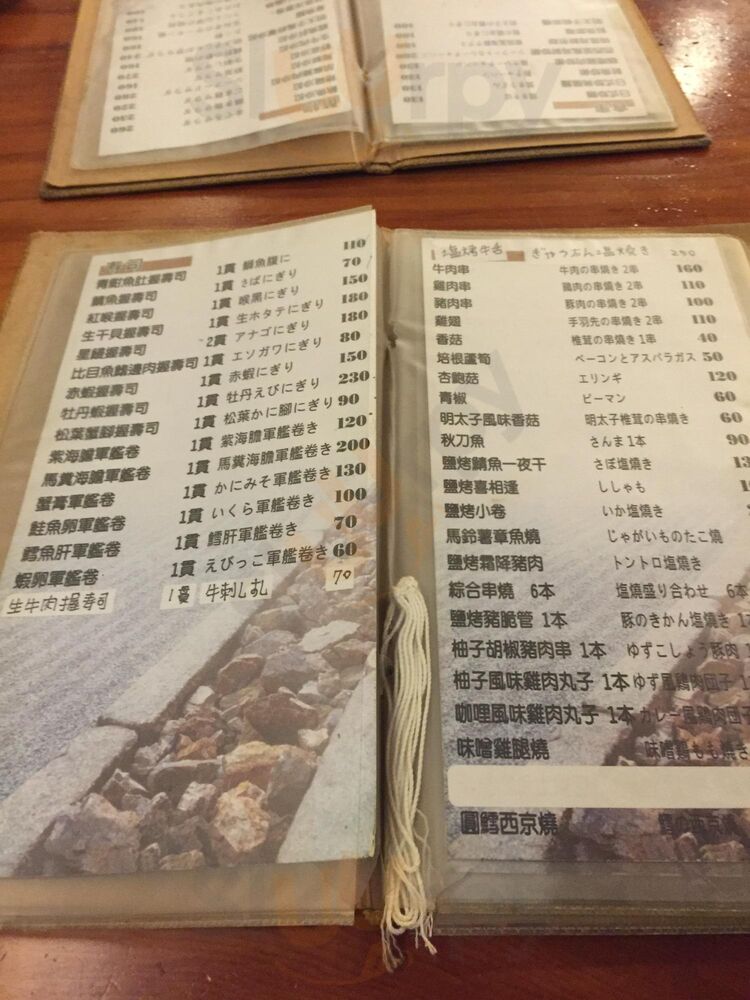 壽司
青魽魚肚握壽司 1貫 鰤魚腹に 110
鯖魚握壽司 1貫 さばにぎり 70
紅喉握壽司 1貫 喉黑にぎり 150
生干貝握壽司 1貫 生ホタテにぎり 180
星鰻握壽司 2貫 アナゴにぎり 180
比目魚鰭邊肉握壽司 1貫 エソガワにぎり 80
赤蝦握壽司 1貫 赤蝦にぎり 150
牡丹蝦握壽司 1貫 牡丹えびにぎり 230
松葉蟹腳握壽司 1貫 松葉かに腳にぎり 90
紫海膽軍艦卷 1貫 紫海膽軍艦卷き 120
馬糞海膽軍艦卷 1貫 馬糞海膽軍艦卷き 200
蟹膏軍艦卷 1貫 かにみそ軍艦卷き 130
鮭魚卵軍艦卷 1貫 いくら軍艦卷き 100
鱈魚肝軍艦卷 1貫 鱈肝軍艦卷き 70
蝦卵軍艦卷 1貫 えびっこ軍艦卷き 60
生牛肉握寿司 1貫 牛刺しすし 70
塩烤牛舌 ぎゅうたん塩焼き
牛肉串 牛肉の串燒き 2串 160
雞肉串 鷄肉の串燒き 2串 110
豬肉串 豚肉の串燒き 2串 100
雞翅 手羽先の串燒き 2串 110
香菇 椎茸の串燒き 1串 40
培根蘆筍 ベーコンとアスパラガス 50
杏鮑菇 エリンギ 120
青椒 ピーマン 60
明太子風味香菇 明太子椎茸の串燒き 60
秋刀魚 さんま 1本 90
鹽烤鯖魚一夜干 さば塩燒き
鹽烤喜相逢 ししゃも
鹽烤小卷 いか塩燒き
馬鈴薯章魚燒 じゃがいものたこ燒
鹽烤霜降豬肉 トントロ塩燒き
綜合串燒 6本 塩燒盛り合わせ 6本
鹽烤豬脆管 1本 豚のきかん塩燒き 1
柚子胡椒豬肉串 1本 ゆずこしょう豚肉 1
柚子風味雞肉丸子 1本 ゆず風鷄肉団子 1
咖哩風味雞肉丸子 1本 カレー風鷄肉団子
味噌雞腿燒 味噌鷄もも燒き
圓鱈西京燒 鱈の西京燒